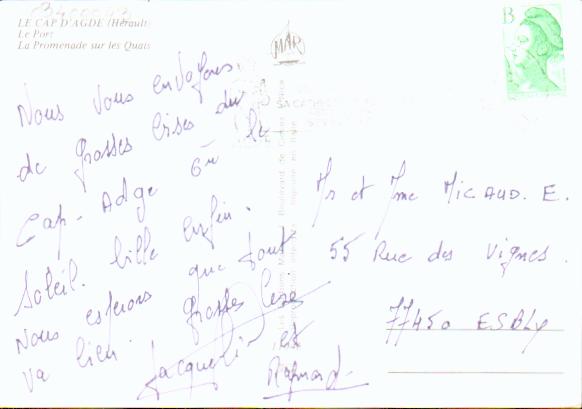 LE CAP D'AGDE (Hérault)
Le Port
La Promenade sur les Quais
MAR
B
Nous vous envoyons
de grosses bises du
Cap-Adge où le
Soleil brille enfin.
Nous espérons que tout
va bien. Grosses bises
Jacqueline et
Raymond
Mr et Mme MICAUD. E.
55 Rue des Vignes.
77450 ESBLY